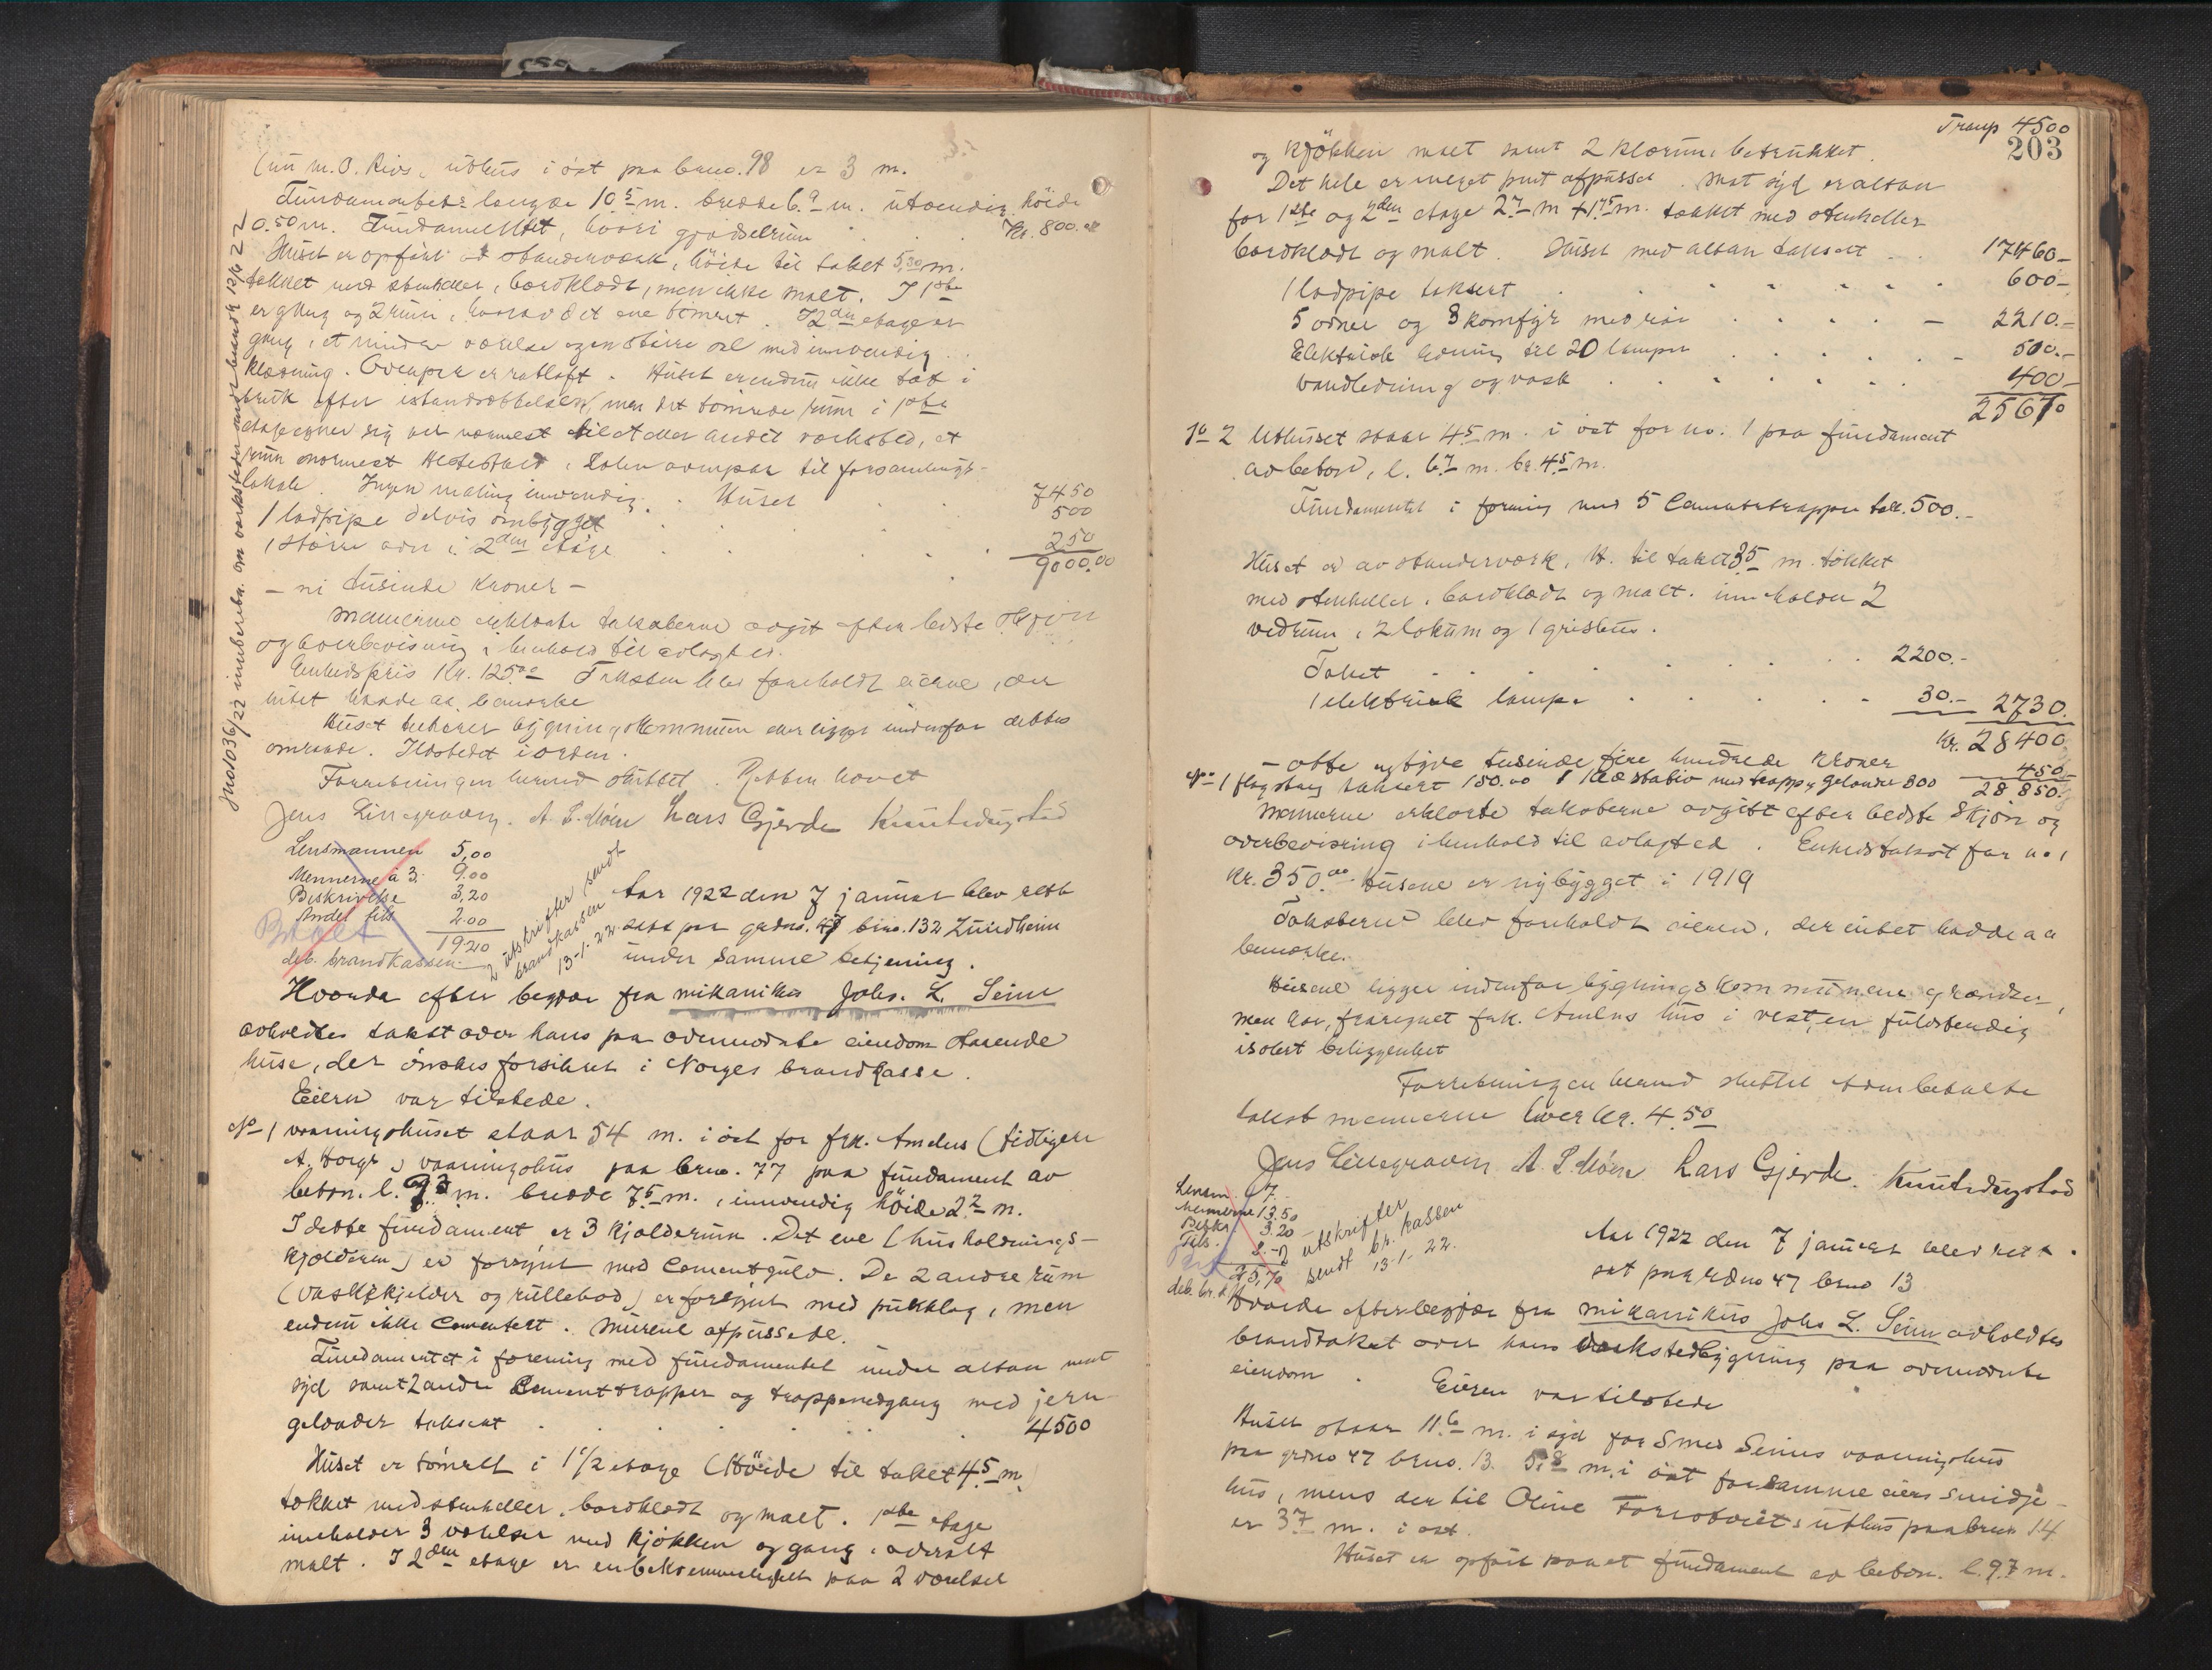 (nu M.O. Rivs, uthus i öst paa brno. 98 er 3 m.
Fundamentets længde 10.5 m. bredde 6.9 m. utvendig höide
0.50 m. Fundamentet, hvori gjödselrum . . . Kr. 800.00
Huset er opført av standerverk, höide til taket 5.30 m.
tækket med stenheller, bordklædt, men ikke malt. I 1ste
er gang og 2 rum, hvorav det ene tömret. I 2den etage er
gang, et mindre værelse og en større sal med innvendig
klædning. Ovenpaa er rotloft. Huset er endnu ikke tat i
bruk efter istandsættelsen, men det tömrede rum i 1ste
etage egner sig vel nærmest til et eller andet verksted, et
rum nærmest hestestald, salen ovenpaa til forsamlings-
lokale. Ingen maling innvendig. Huset . . 7450
1 ladpipe delvis ombygget . . . 500
1 større ovn i 2den etage . . . 250
9000.00
- ni tusinde kroner -
Mænnerne erklærte taksterne avgit efter bedste skjøn
og overbevisning i henhold til avlagt ed.
Enhedspris Kr. 125.00 Taksten blev foreholdt eieren, der
intet hadde at bemerke
Huset tilhører bygningskommunen eller ligger indenfor dettes
omraade. Ildstedet i orden.
Forretningen hermed sluttet. Retten hævet
Jens Lillegraven. A. P. Moen Lars Gjerde Knut
Lensmannen 5,00
Mennerne à 3.- 9.00
Beskrivelse 3,20
Andel skts 2.00
19.20
Betalt
deb. brandkassen
2 utskrifter sendt
brandkassen
13-1-22.
Jnal 036/22 innberetn. om verksteden sendt brandk 12/6 22
Aar 1922 den 7 januar blev rett
satt paa gardno. 47 brno. 132 Lundheim
under samme betjening.
Hvorda efter begjær fra mikanikus Johs. L. Seim
avholdtes takst over hans paa ovennævnte eiendom staaende
huse, der önskes forsikret i Norges brandkasse.
Eieren var tilstede.
No 1 vaaningshuset staar 54 m. i öst for frk. Amelns (tidligere
A. Horge) vaaningshus paa brno. 77 paa fundament av
beton. l. 9.3 m. bredde 7.5 m., innvendig höide 2.2 m.
I dette fundament er 3 kjælderrum. Det ene (husholdnings-
kjælderen) er forsynt med cementgulv. De 2 andre rum
(vaskekjelder og rullebod) er forsynt med pukklag, men
endnu ikke cementert. Murene afpussede.
Fundamentet i forening med fundamentet under altan mot
syd samt 2 andre cementtrapper og trappenedgang med jern
gelænder taksert . . . . . . 4500
Huset er tömret i 1 1/2 etage (Höide til taket 4.5 m.
tækket med stenheller, bordklædt og malt. 1ste etage
inneholder 3 værelser med kjøkken og gang, overalt
malt. I 2den etage er en bekvemmelighet paa 2 værelser
Transp 4500
203
og kjökken malt samt 2 klærum betrukket.
Det hele er meget pent afpusset. Mot syd er altan
for 1ste og 2den etage 2.7 m + 1.75 m. tækket med stenheller
bordklædt og malt. Huset med altan taksert . . 17460-
1 ladpipe taksert . . . . . . 600-
5 ovner og 3 komfyr med rör . . . . - 2210.-
Elektrisk ledning til 20 lamper . . . . - 500.-
Vandledning og vask . . . . . 400-
25670
No 2 Uthuset staar 4.5 m. i öst for no. 1 paa fundament
av beton, l. 6.7 m. br. 4.5 m.
Fundamentet i forening med 5 cementtrapper taks. 500.-
Huset er av standerverk, H. til taket 3.5 m. tækket
med stenheller, bordklædt og malt. inneholder 2
vedrum, 2 lokum og 1 grishus.
Taket . . . . . . 2200.-
1 elektrisk lampe . . . . - 30.- 2730.
Kr. 28400
- otte og tyve tusinde fire hundrede kroner
No 1 flagstang taksert 150.00 1 klæstativ med trapp og gelænder 300 450.-
28850.-
Mænnerne erklærte taksterne avgitt efter bedste skjön og
overbevisning i henhold til avlagt ed. Enhedstakst for no 1
Kr. 350.00 Husene er nybygget i 1919
Taksterne blev foreholdt eieren, der intet hadde at
bemerke.
Husene ligger indenfor bygningskommunens grændser,
men har, fraregnet frk. Amelns hus i vest, en fuldstendig
isolert beliggenhet
Forretningen hermed sluttet som betalte
takstmennerne hver kr. 4.50
Jens Lillegraven A. P. Moen Lars Gjerde. Knut
Lensm. 7.-
Mennerne 13.50
Beskr. 3.20
Skts. 2.-
25,70
deb. br.k.
2 utskrifter
sendt br. kassen
13-1-22.
Aar 1922 den 7 januar blev rett
sat paa grdno 47 brno 13
Hvorda efter begjær fra mikanikus Johs L. Seim avholdtes
brandtakst over hans verkstedbygning paa ovennævnte
eiendom . Eieren var tilstede
Huset staar 11.6 m. i syd for Smed Seims vaaningshus
paa grdno 47 brno. 13. 5.8 m. i öst for samme eiers smidje-
hus, mens den til Oline uthus paa brno 14
er 3.7 m. i öst.
Huset er opfört paa et fundament av beton. l. 9.7 m.